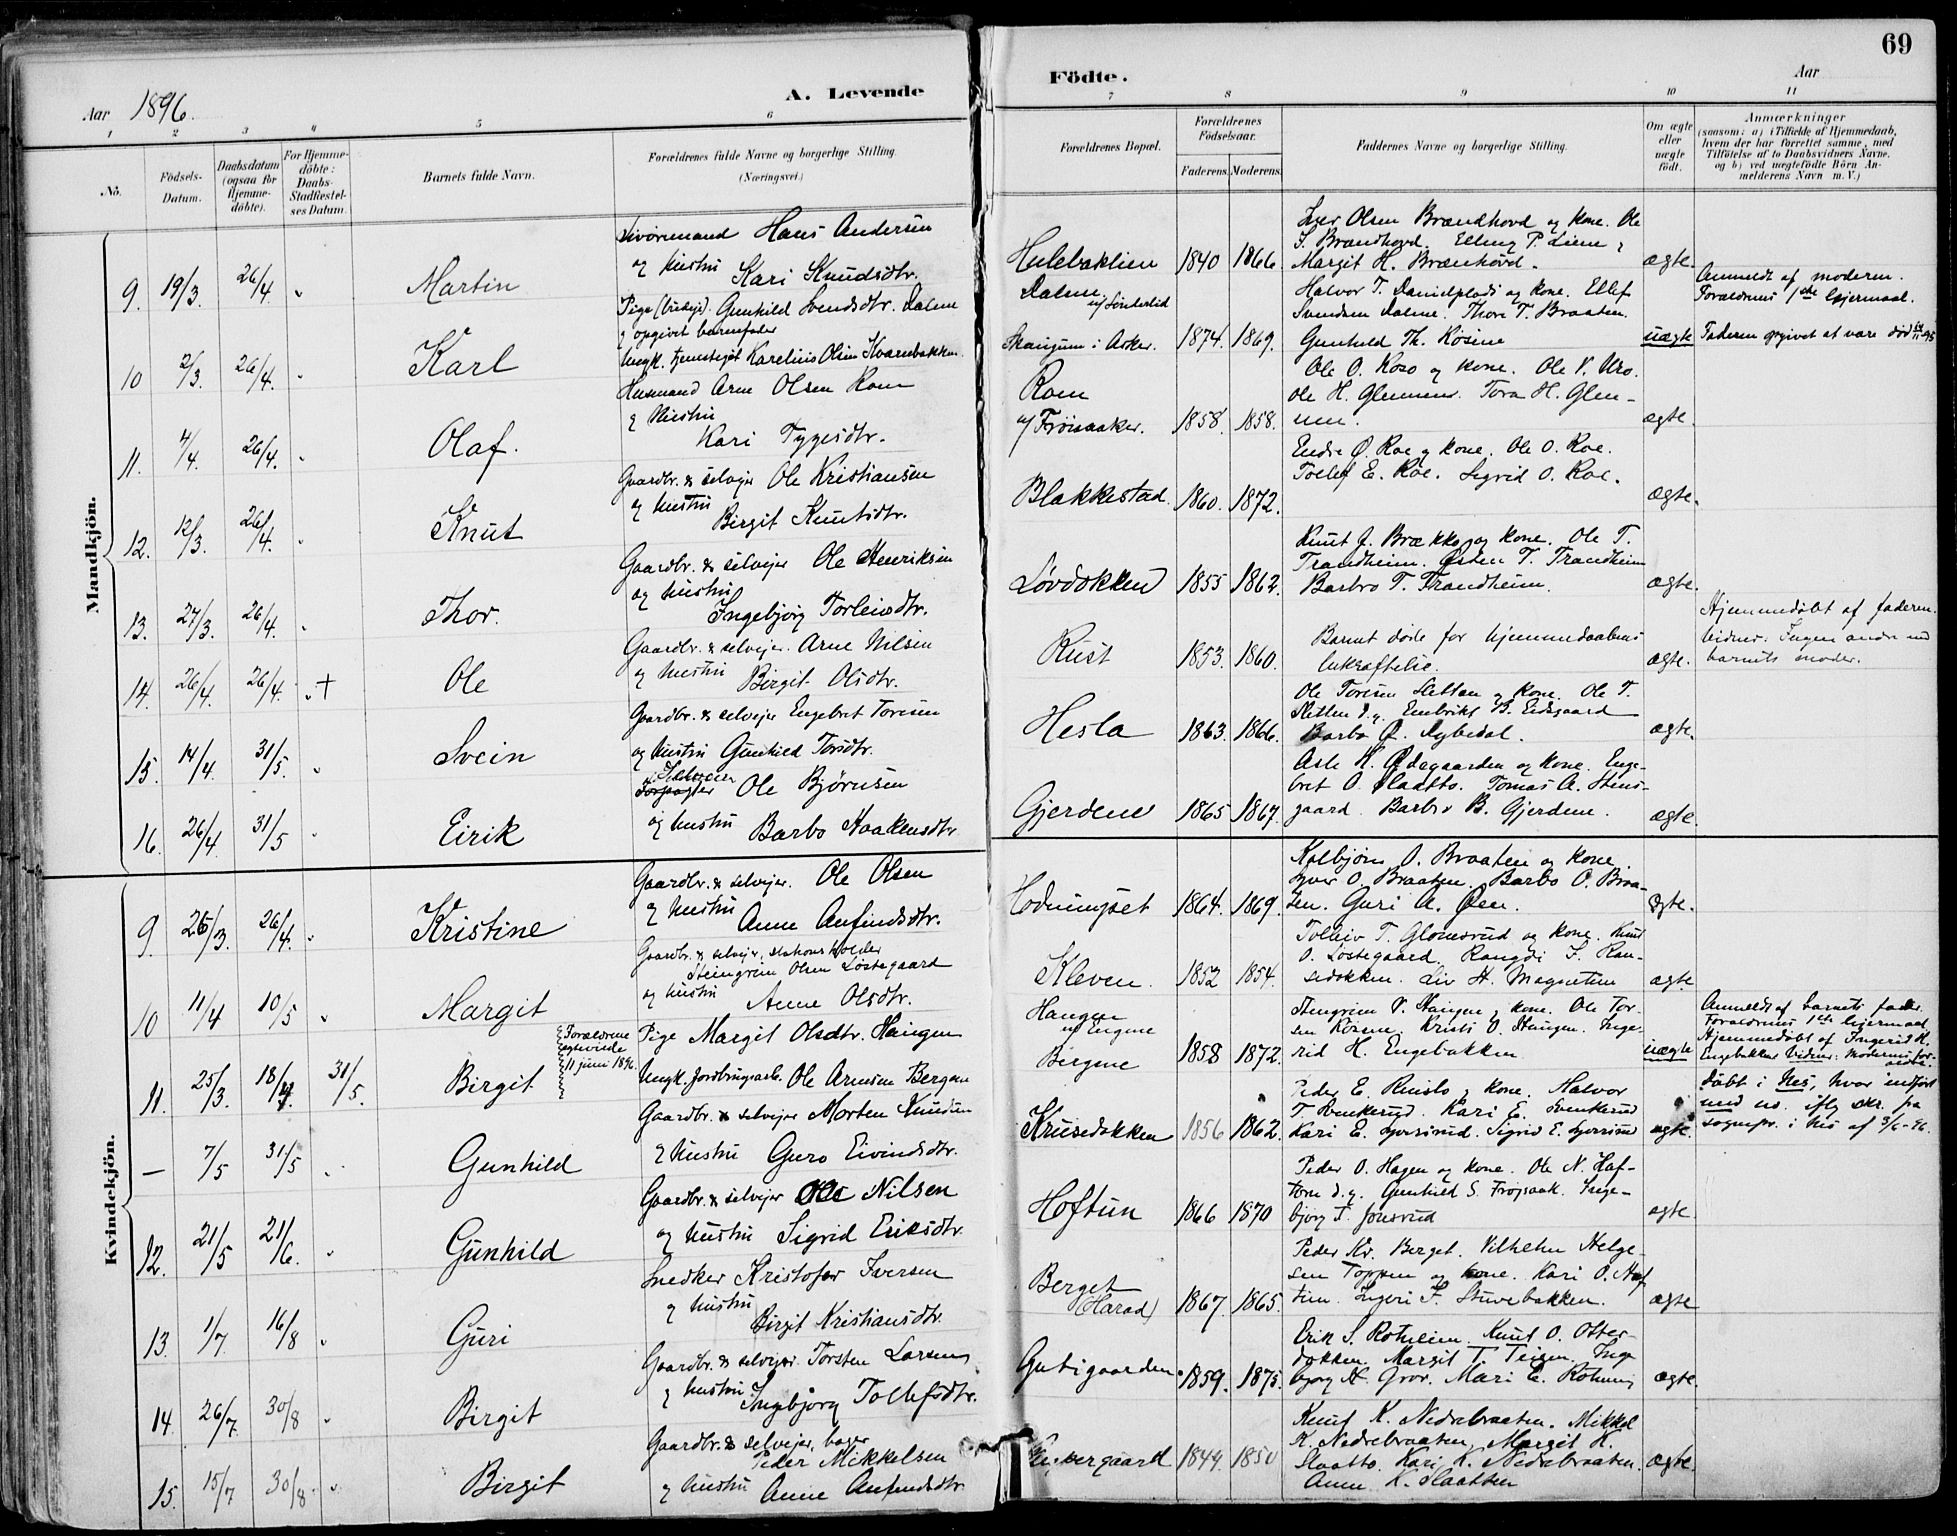 69
Aar 1896.
A. Levende
Födte.
Aar
1 2 3 4 5 6 7 8 9 10 11
No.
Födsels-Datum.
Daabsdatum (ogsaa for Hjemme-döbte).
For Hjemme-döbte: Daabs-Stadfæstel-ses Datum.
Barnets fulde Navn.
Forældrenes fulde Navne og borgerlige Stilling. (Næringsvei.)
Forældrenes Bopæl.
Forældrenes Födselsaar.
Faderens. Moderens.
Faddernes Navne og borgerlige Stilling.
Om ægte eller uægte födt.
Anmærkninger (saasom: a) i Tilfælde af Hjemmedaab, hvem der har forrettet samme, med Tilföielse af to Daabsvidners Navne, og b) ved uægtefödte Börn Anmelderens Navn m. V.)
Mandkjön.
9. 19/3. 26/4. "
Martin
Hans Andersen
og hustru Kari Knudsdtr.
Hulebaklien 1840 1866.
Iver Olsen Brændhovd og kone. Ole
S. Brændhovd. Elling P. Liem
Margit H. Brænhovd.
ægte.
10 2/3. 26/4. "
Karl
Pige Gunhild Svendsdtr. Dalene
opgivet barnefader
Ungk. Karelius Olsen Kvarnbakken.
Dalene
Skaugum i Asker. 1874. 1869.
Halvor T. Danielplads og kone. Ellef
Svendsen Dalene. Thore T. Braaten.
Gunhild Th. Rösine
uægte
Anmeldt af moderen.
Forældrenes 1ste leiermaal.
Faderen opgivet at være död
11. 4/4. 26/4. "
Olaf.
Husmand Arne Olsen Rom
og hustru
Kari Tygesdtr.
Rom
u/ Fröisaaker. 1858 1858.
Ole O. Roso og kone. Ole V. Uro.
Ole H. Glemmen. Tora H. Glem-
men.
ægte.
12. 12/3. 26/4. "
Knut
Gaardbr. & selveier Ole Kristiansen
og hustru Birgit Knutsdtr.
Blakkestad 1860. 1872.
Endre Ø. Roe og kone. Ole O. Roe.
Tollef E. Roe. Sigrid O. Roe.
ægte.
13. 27/3. 26/4. "
Thor.
Gaardbr. & selveier Ole Henriksen
og hustru
Ingebjörg Torleivsdtr.
Lövdokken 1855 1862.
Knut J. Brække og kone. Ole T.
Trandheim. Østen T. Trandheim
Barbro T. Trandheim.
ægte.
14. 26/4. 26/4. " †
Ole
Gaardbr. & selveier. Arne Nilsen
og hustru Birgit Olsdtr.
Rust 1853. 1860.
Barnet döde för hjemmedaabens
bekræftelse.
ægte.
Hjemmedöbt af faderen.
Vidner: Ingen andre end
barnets moder.
15. 14/4. 31/5. "
Svein
Gaardbr. & selveier Engebret Toresen
og hustru Gunhild Torsdtr.
Hesla 1863. 1866.
Ole Toresen Slettan og kone. Ole T.
Sletten d.y. Embrikt B. Eidsgaard
Barbo Ø. Nybedal.
ægte.
16. 26/4 31/5 "
Eirik
Selveier
Forpagter Ole Björnsen
og hustru Barbo Haakensdtr.
Gjerdene 1865 1867.
Asle K. Ødegaarden og kone. Enge-
bret O. Slaatto. Tomas A. Stens-
gaard. Barbro B. Gjerdene.
ægte.
Kvindekjön.
9. 25/3. 26/4. "
Kristine
Gaardbr. & selveier. Ole Olsen
og hustru Anne Anfindsdtr.
Hodnungset 1864. 1869.
Kolbjörn O. Braaten og kone.
Syver O. Braaten. Barbo O. Braa-
ten. Guri A. Øen.
ægte.
10 11/4 10/5 "
Margit
Gaardbr. & selveier, stationsholder
Steingrim Olsen Löstegaard
og hustru Anne Olsdtr.
Kleven. 1852 1854.
Tolleiv T. Glomsrud og kone. Knud
O. Löstegaard. Rangdi S. Ran-
sedokken. Liv H. Magnetun
ægte
11. 25/3. 18/4. 31/5.
Birgit
Forældrene
ægteviede
11 juni 1896.
Pige Margit Olsdtr. Haugen
Ungk. Jordbrugsarb. Ole Arnesen Bergene
Haugen
u/ Engene
Bergene 1858 1872.
Stengrim P. Haugen og kone. Ole Tor-
sen Rösene. Kristi O. Haugen. Inge-
rid H. Engebakken
uægte
Anmeldt af barnets fader.
Forældrenes 1ste leiermaal.
Hjemmedöbt af Ingerid H.
Engebakken. Vidner: Moderens for-
ældre.
– 7/5 31/5 "
Gunhild
Gaardbr. & selveier Morten Knudsen
og hustru Guro Eivindsdtr.
Krusedokken 1856 1862.
Peder E. Ruusto og kone. Halvor
T. Svenkerud. Kari E. Svenkerud
Kari E. Sjversrud. Sigrid E.
ægte.
Döbt i Nes, hvor indfört
med no. iflg. skr. fra
sognepr. i Nes af 3/6-96.
12. 21/5 21/6. "
Gunhild
Gaardbr. & selveier Ole Nilsen
og hustru Sigrid Eriksdtr.
Hoftun 1866 1870
Peder O. Hagen og kone. Ole N. Haf-
ton d.y. Gunhild S. Fröisaak. Inge-
björg T. Jonsrud
ægte
13. 1/7. 16/8 "
Guri
Snedker Kristofer Iversen
og hustru
Birgit Kristiansdtr.
Berget
(Harad) 1867. 1865.
Peder Kr. Berget. Vilhelm Helge-
sen Toppen og kone. Kari O. Haf
tun. Ingeri F. Stuvebakken.
ægte
14. 26/7. 30/8 "
Birgit
Gaardbr. & selveier. Torsten Larsen
og hustru Ingebjörg Tollefsdtr.
Gutigaarden 1859. 1875.
Erik S. Rotneim. Knut O. Otter-
dokken. Margit T. Teigen. Inge
bjorg H. Grov. Mari E. Rotneim
ægte.
15. 15/7 30/8 "
Birgit
Gaardbr. & selveier, bager
Peder Mikkelsen
og hustru Anne Anfindsdtr.
1849. 1850
Knut K. Nedrebraaten. Mikkel
K. Nedrebraaten. Margit K.
Slaatto. Kari K. Nedrebraaten.
Anne K. Slaatten
ægte.